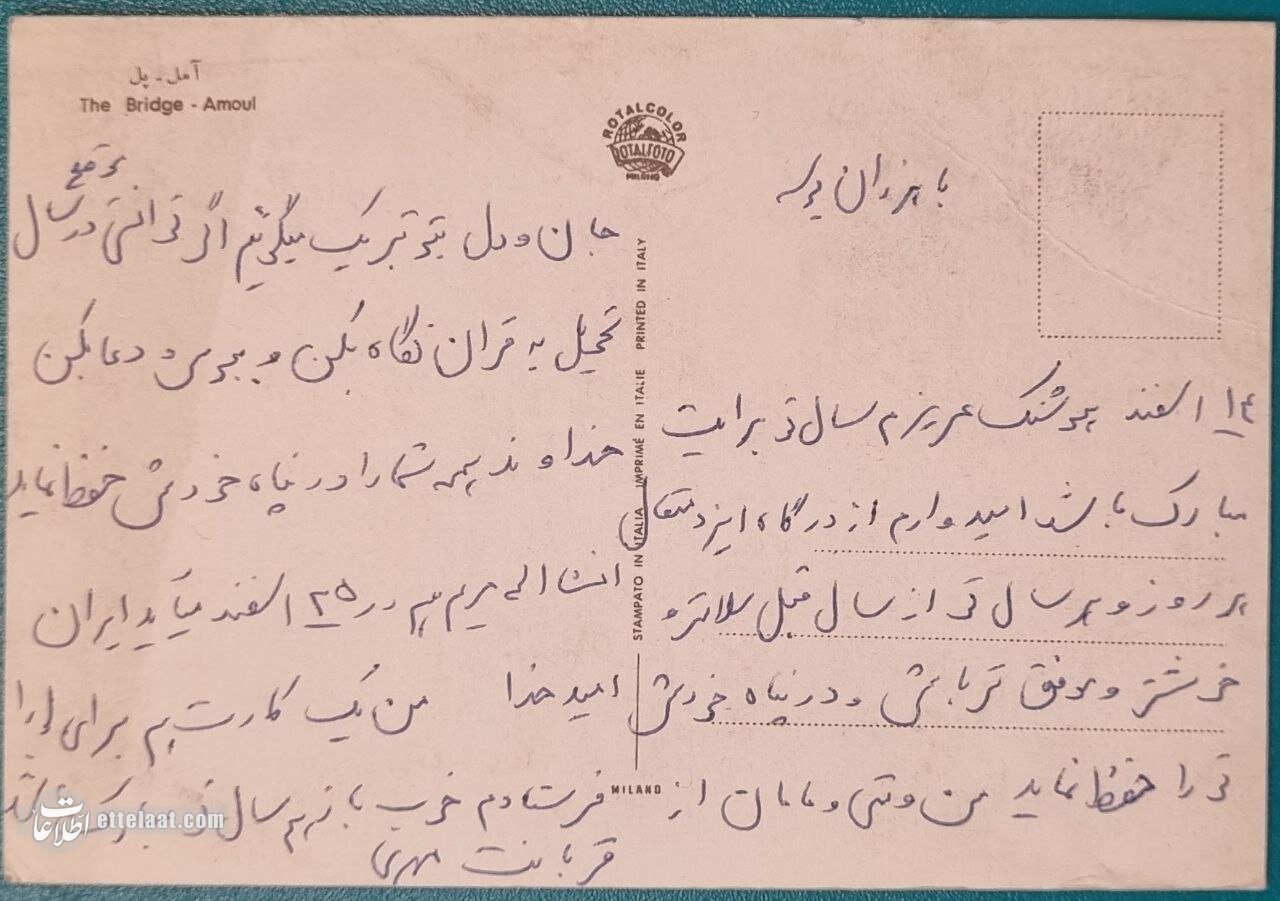 آمل - پل
The Bridge - Amoul
ROTALCOLOR
ROTALFOTO
MILANO
با هزاران بوسه
۱۴ اسفند هوشنگ عزیزم سال نو برایت
مبارک باشد امیدوارم از درگاه ایزد متعال
هر روز و هر سال نو از سال قبل سلامتر و
خوشتر و موفق تر باشی و در پناه خودش
تو را حفظ نماید من و تقی و مامان از
جان و دل بتو تبریک میگوئیم اگر توانستی در سال
موقع
تحویل به قران نگاه بکن و ببوس و دعا بکن
خداوند همه شما را در پناه خودش حفظ نماید
انشاالله مریم هم در ۲۵ اسفند میآید ایران
امید خدا من یک کارت هم برای
فرستادم خوب باز هم سال نو مبارک باشد
قربانت مهری
STAMPATO IN ITALIA IMPRIMÉ EN ITALIE PRINTED IN ITALY
MILANO
اطلاعات ettelaat.com